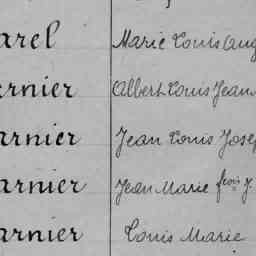 arel Marie Louis Aug
ernier Albert Louis Jean
arnier Jean Louis Josep
arnier Jean Marie fcois J.
arnier Louis Marie